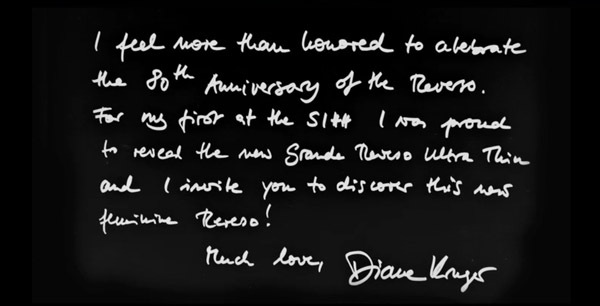 I feel more than honored to celebrate
the 80th Anniversary of the Reverso.
For my first at the SIHH I was proud
to reveal the new Grande Reverso Ultra Thin
and I invite you to discover this new
feminine Reverso!
Much love, Diane Kruger